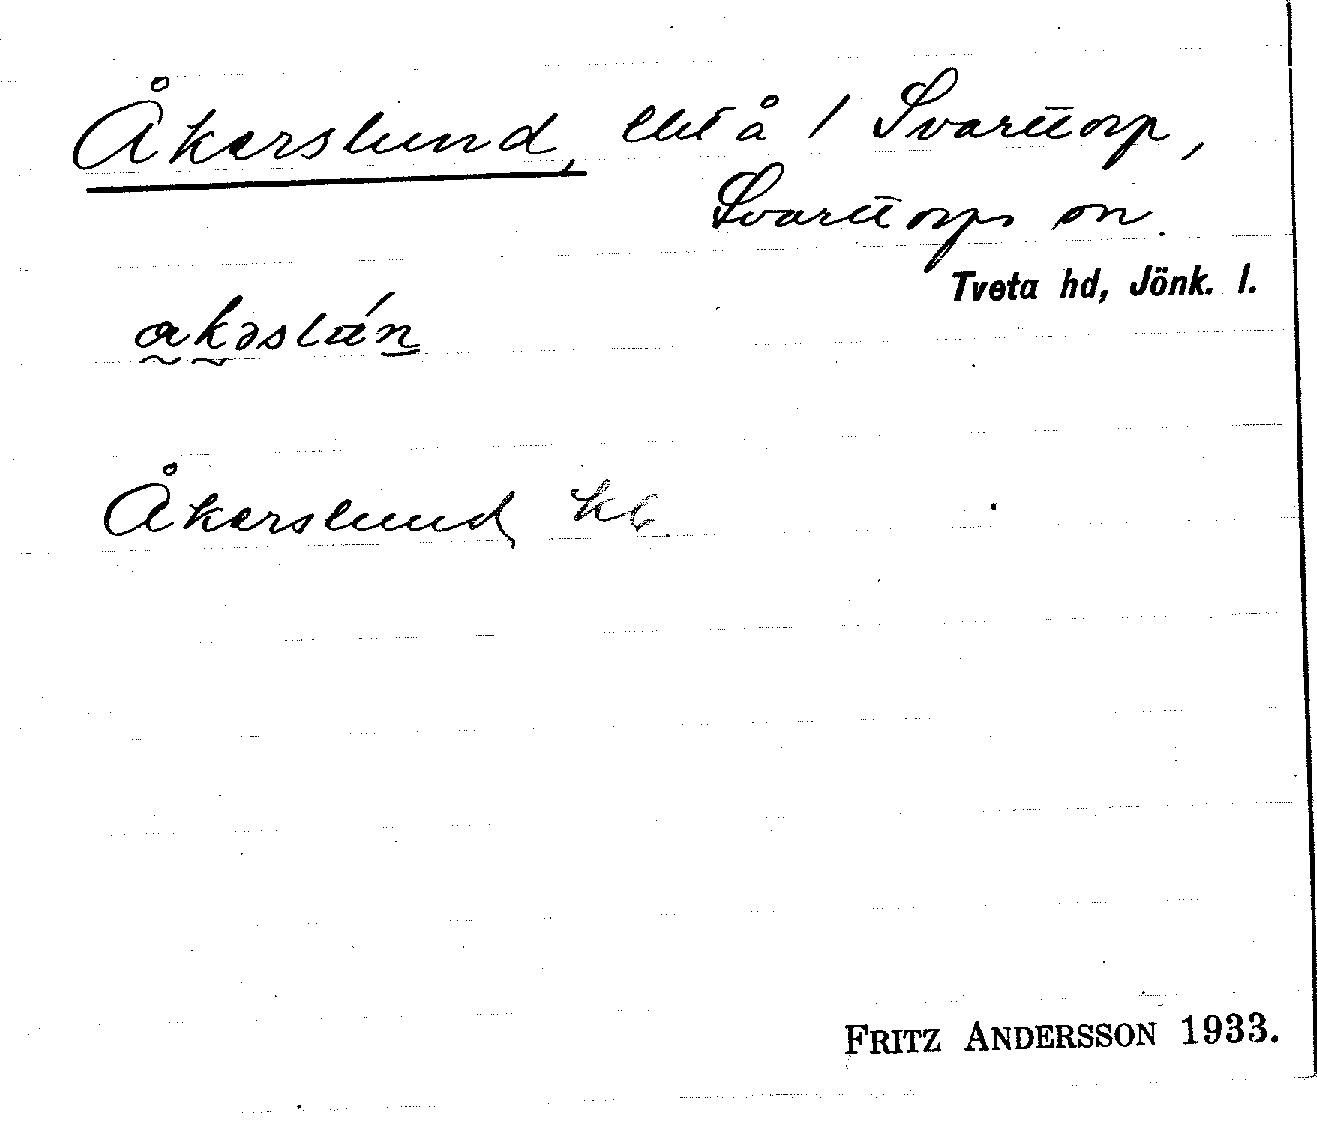 Åkerslund, lht å 1 Svarttorp,
Svarttorps sn.
Tveta hd, Jönk. l.
Åkerslund kb.
FRITZ ANDERSSON 1933.